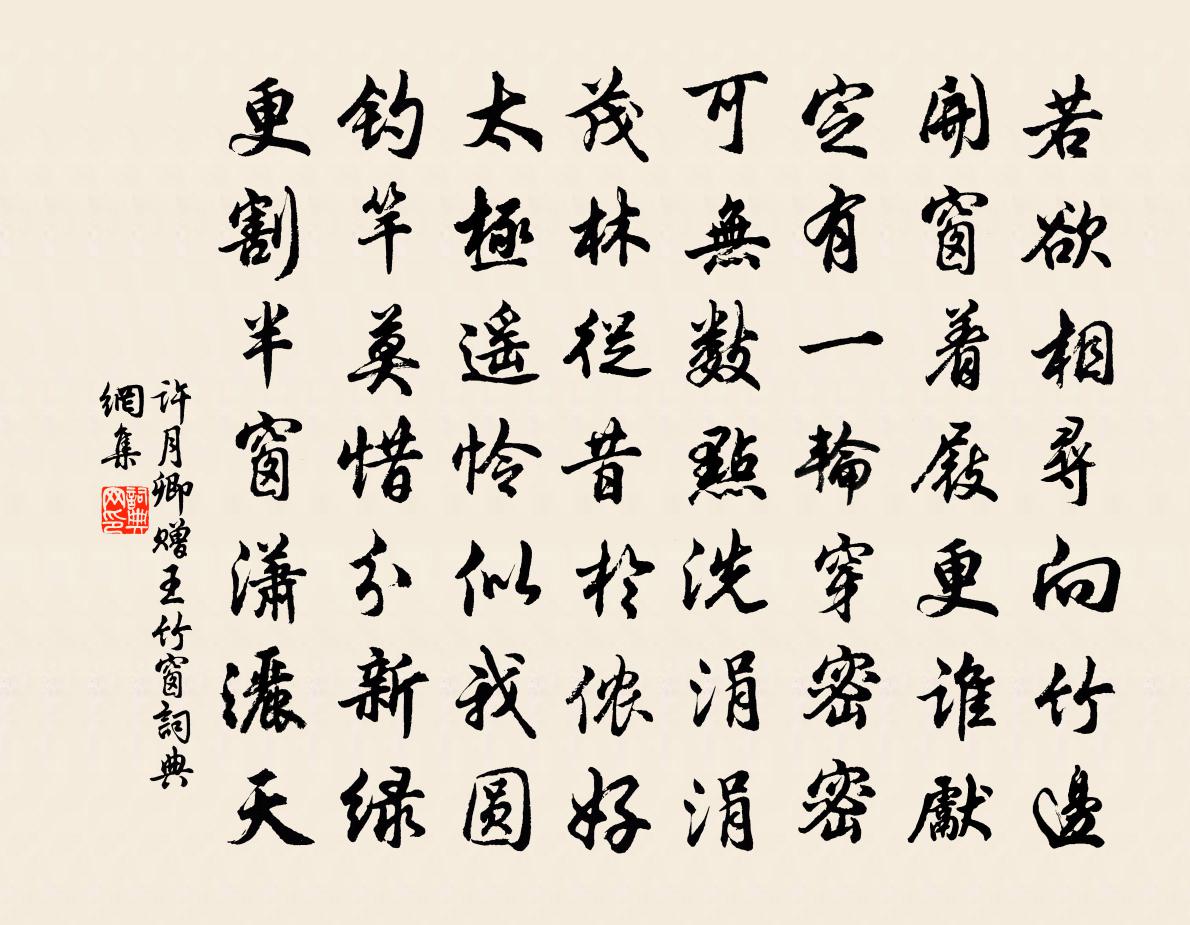 若欲相尋向竹邊
開窗着屐更誰獻
定有一輪穿密密
可無數點洗涓涓
茂林從昔於儂好
太極遥怜似我圆
釣竿莫惜分新绿
更割半窗瀟灑天
許月卿赠王竹窗詞典
網集
詞典
网印